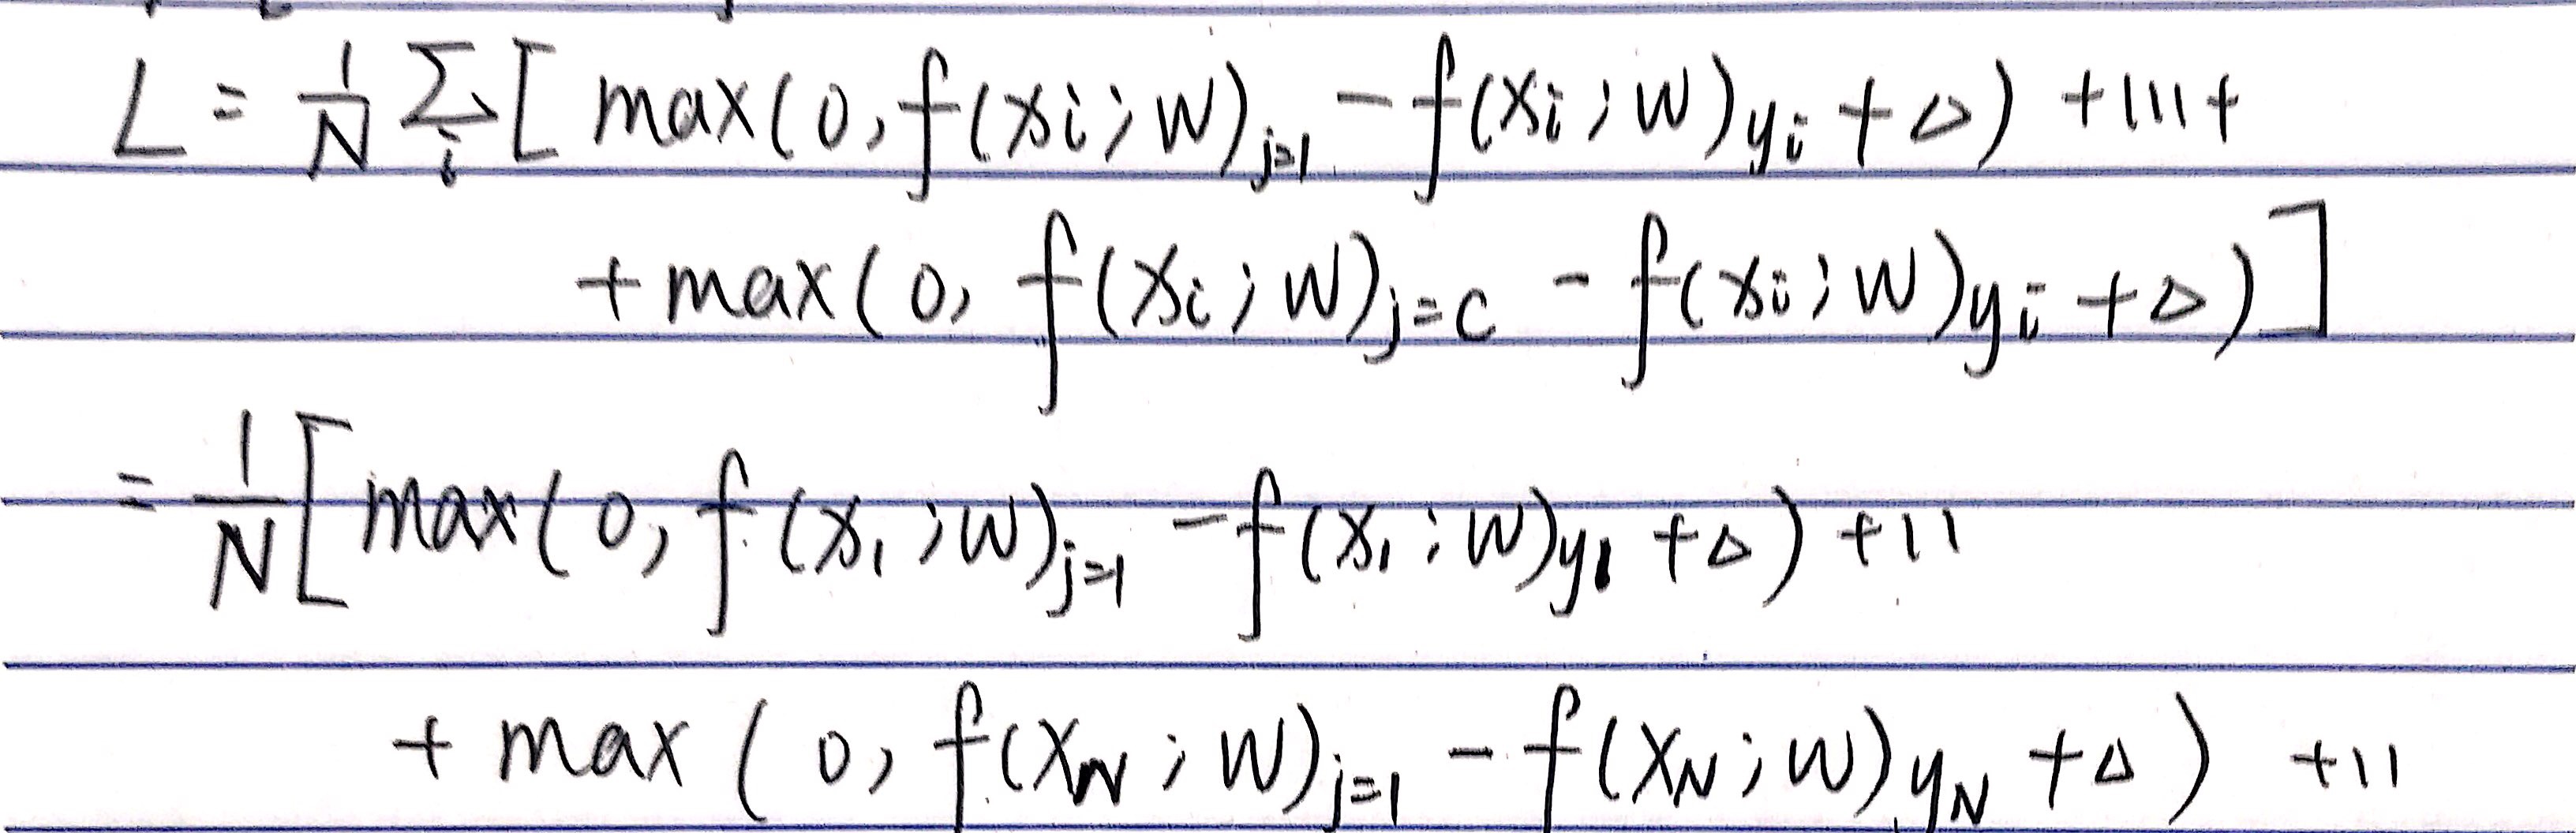 L = 1/N Σ_i [ max(0, f(xi; W)_{j=1} - f(xi; W)_{yi} + Δ) + ııı +
+ max(0, f(xi; W)_{j=c} - f(xi; W)_{yi} + Δ) ]
= 1/N [ max(0, f(x₁; W)_{j=1} - f(x₁; W)_{y₁} + Δ) + ıı
+ max(0, f(x_N; W)_{j=1} - f(x_N; W)_{y_N} + Δ) + ıı